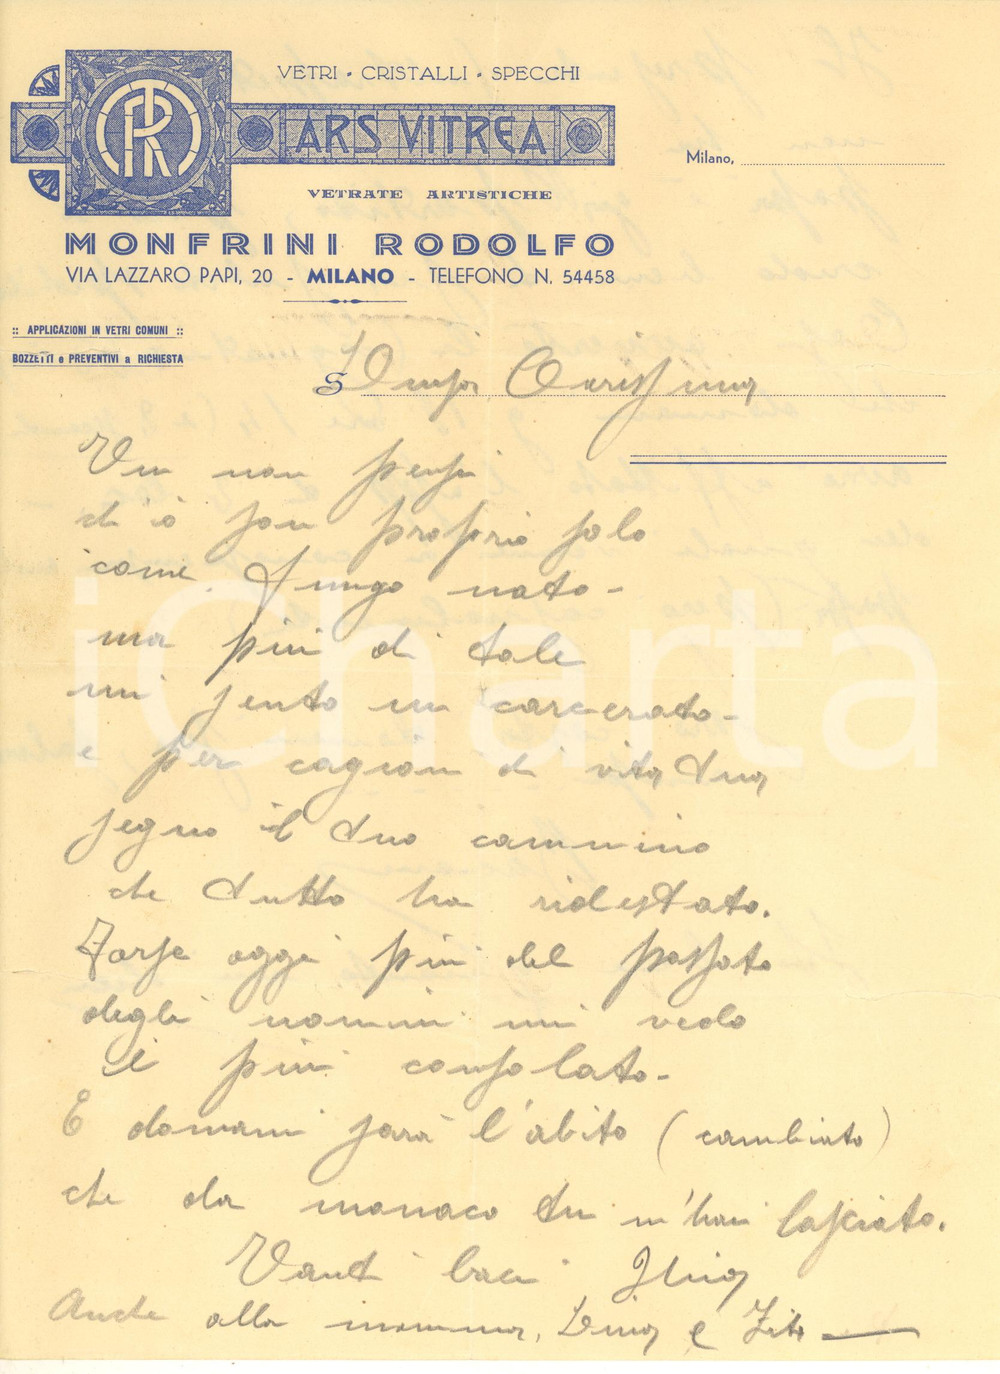 VETRI · CRISTALLI · SPECCHI
ARS VITREA
VETRATE ARTISTICHE
MONFRINI RODOLFO
VIA LAZZARO PAPI, 20 - MILANO - TELEFONO N. 54458
Milano,
:: APPLICAZIONI IN VETRI COMUNI ::
BOZZETTI e PREVENTIVI a RICHIESTA
S Carissima
Tu non pensi
ch'io son proprio solo
come fungo nato -
ma più di tale
mi sento un carcerato -
e per cagion di vita tua
segno il tuo cammino
che tutto ha ridestato.
Forse oggi più del passato
degli uomini mi vedo
e più consolato -
E domani sarà l'abito (cambiato)
che da monaco tu m'hai lasciato.
Tanti baci
Anche alla mamma, Dina e Zita
iCharta